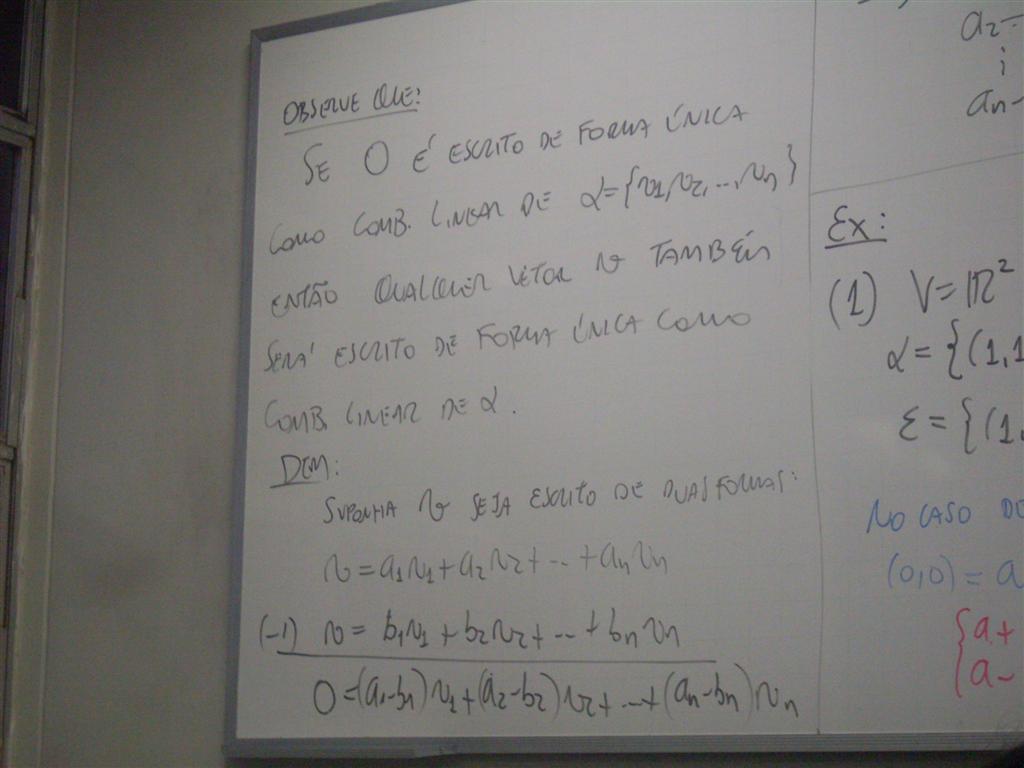 OBSERVE QUE:
SE O É ESCRITO DE FORMA ÚNICA
COMO COMB. LINEAR DE α={v1,v2,...,vn}
ENTÃO QUALQUER VETOR v TAMBÉM
SERÁ ESCRITO DE FORMA ÚNICA COMO
COMB. LINEAR DE α.
DEM:
SUPONHA v SEJA ESCRITO DE DUAS FORMAS:
v=a1v1+a2v2+...+anvn
(-1) v=b1v1+b2v2+...+bnvn
0=(a1-b1)v1+(a2-b2)v2+...+(an-bn)vn
a2=
an-
Ex:
(1) V=ℝ²
α={(1,1
ε={(1,
NO CASO DO
(0,0)=a
{a+
a-